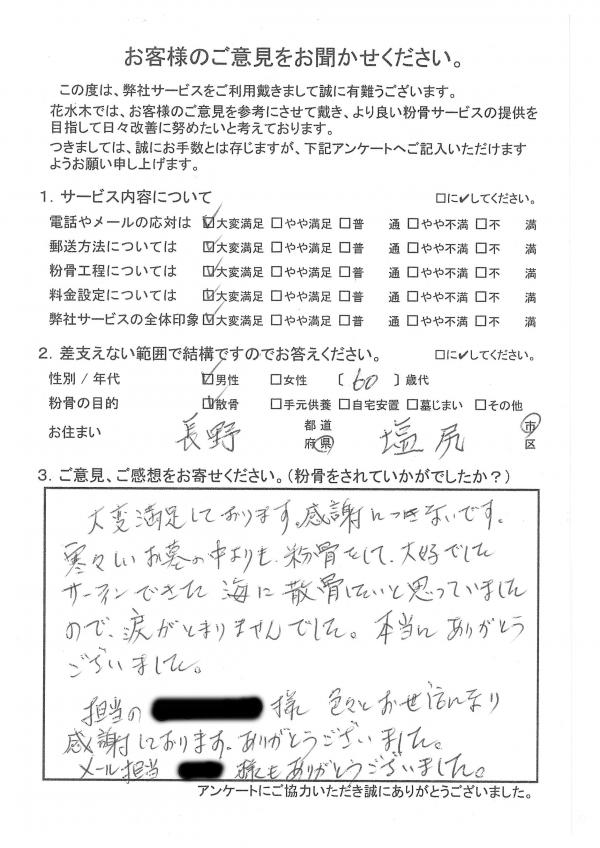 お客様のご意見をお聞かせください。
この度は、弊社サービスをご利用戴きまして誠に有難うございます。
花水木では、お客様のご意見を参考にさせて戴き、より良い粉骨サービスの提供を
目指して日々改善に努めたいと考えております。
つきましては、誠にお手数とは存じますが、下記アンケートへご記入いただけます
ようお願い申し上げます。
1. サービス内容について □に✓してください。
電話やメールの応対は ☑大変満足 □やや満足 □普 通 □やや不満 □不 満
郵送方法については ☑大変満足 □やや満足 □普 通 □やや不満 □不 満
粉骨工程については ☑大変満足 □やや満足 □普 通 □やや不満 □不 満
料金設定については ☑大変満足 □やや満足 □普 通 □やや不満 □不 満
弊社サービスの全体印象 ☑大変満足 □やや満足 □普 通 □やや不満 □不 満
2. 差支えない範囲で結構ですのでお答えください。 □に✓してください。
性別/年代 ☑男性 □女性 〔 60 〕歳代
粉骨の目的 ☑散骨 □手元供養 □自宅安置 □墓じまい □その他
お住まい 長野 都道府県 塩尻 市区
3. ご意見、ご感想をお寄せください。(粉骨をされていかがでしたか?)
大変満足しております。感謝につきないです。
寒々しいお墓の中よりも、粉骨をして、大好でした
サーフィンできた 海に散骨したいと思っていました
ので、涙がとまりませんでした。本当に ありがとう
ございました。
担当の 様に 色々とお世話になり
感謝しております。ありがとうございました。
メール担当 様もありがとうございました。
アンケートにご協力いただき誠にありがとうございました。